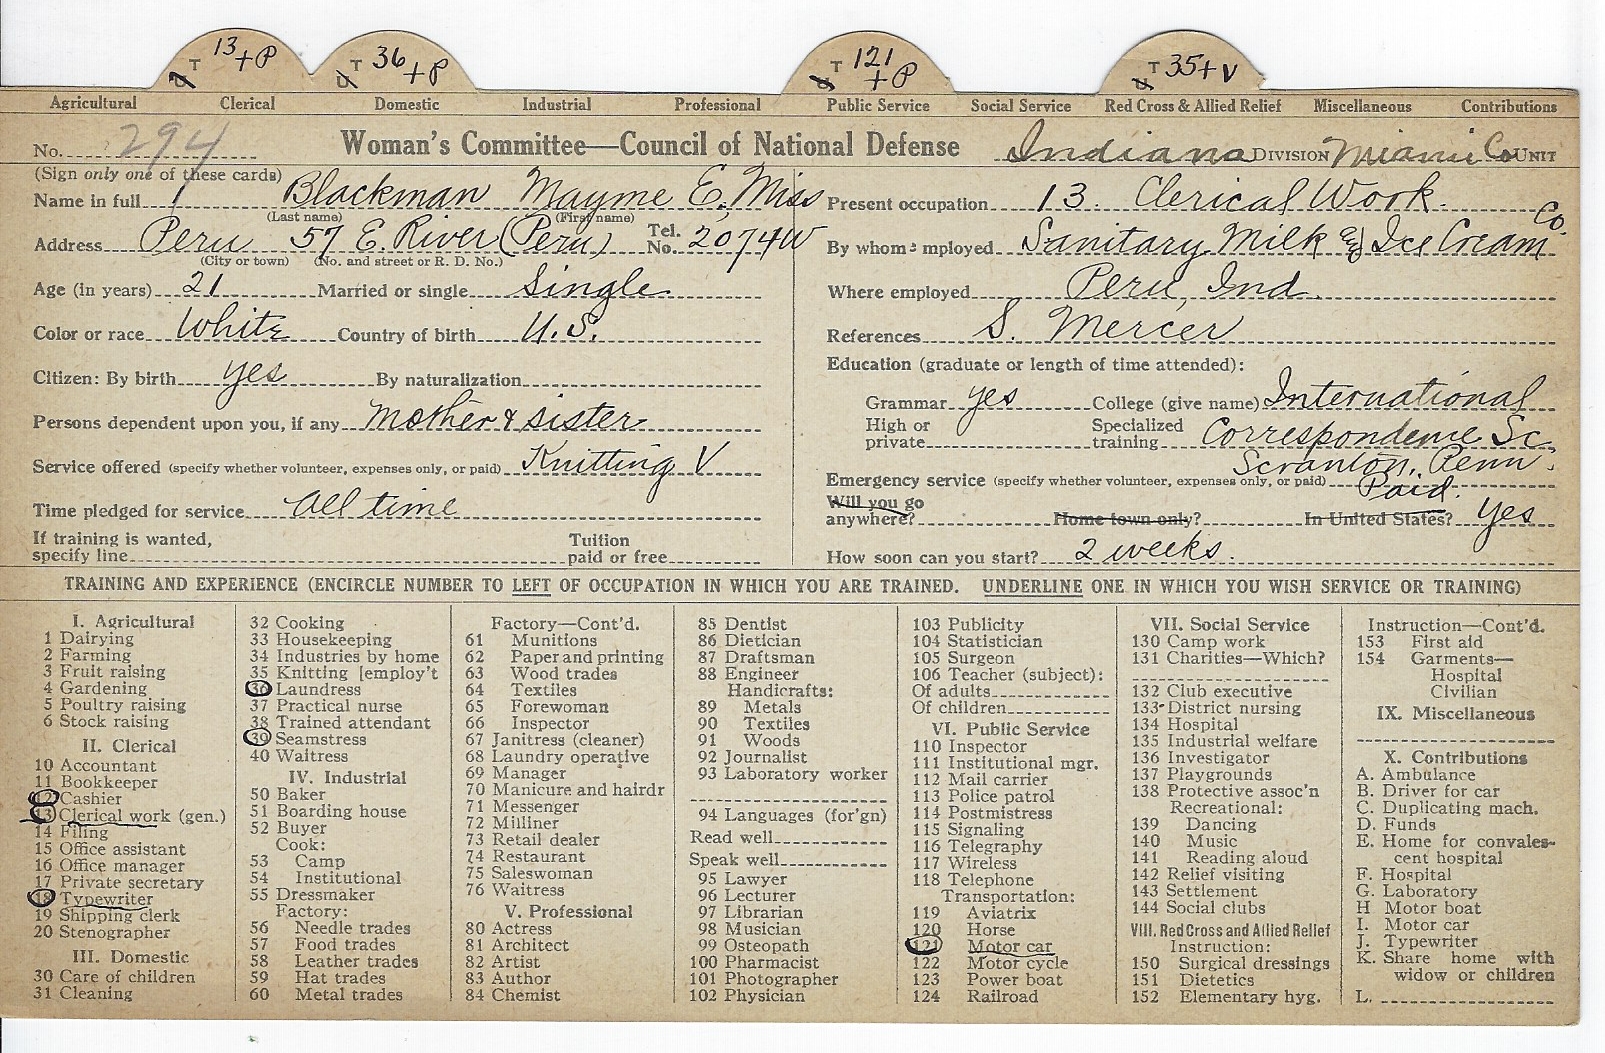 T 13+P T 36+P T 121+P T 35+V
Agricultural Clerical Domestic Industrial Professional Public Service Social Service Red Cross & Allied Relief Miscellaneous Contributions
No. 294 Woman's Committee—Council of National Defense Indiana DIVISION Miami Co UNIT
(Sign only one of these cards)
Name in full 1 Blackman Mayme E. Miss
(Last name) (First name)
Address Peru 57 E. River (Peru) Tel. No. 2074W
(City or town) (No. and street or R. D. No.)
Age (in years) 21 Married or single Single
Color or race White Country of birth U.S.
Citizen: By birth yes By naturalization
Persons dependent upon you, if any Mother & sister
Service offered (specify whether volunteer, expenses only, or paid) Knitting V
Time pledged for service All time
If training is wanted, specify line Tuition paid or free
Present occupation 13. Clerical Work.
By whom employed Sanitary Milk & Ice Cream Co.
Where employed Peru, Ind.
References S. Mercer
Education (graduate or length of time attended):
Grammar yes College (give name) International
High or private Specialized training Correspondence Sc.
Scranton, Penn.
Emergency service (specify whether volunteer, expenses only, or paid) Paid.
Will you go anywhere? Home town only? In United States? Yes
How soon can you start? 2 weeks.
TRAINING AND EXPERIENCE (ENCIRCLE NUMBER TO LEFT OF OCCUPATION IN WHICH YOU ARE TRAINED. UNDERLINE ONE IN WHICH YOU WISH SERVICE OR TRAINING)
I. Agricultural
1 Dairying
2 Farming
3 Fruit raising
4 Gardening
5 Poultry raising
6 Stock raising
II. Clerical
10 Accountant
11 Bookkeeper
12 Cashier
13 Clerical work (gen.)
14 Filing
15 Office assistant
16 Office manager
17 Private secretary
18 Typewriter
19 Shipping clerk
20 Stenographer
III. Domestic
30 Care of children
31 Cleaning
32 Cooking
33 Housekeeping
34 Industries by home
35 Knitting [employ't
36 Laundress
37 Practical nurse
38 Trained attendant
39 Seamstress
40 Waitress
IV. Industrial
50 Baker
51 Boarding house
52 Buyer
Cook:
53 Camp
54 Institutional
55 Dressmaker
Factory:
56 Needle trades
57 Food trades
58 Leather trades
59 Hat trades
60 Metal trades
Factory—Cont'd.
61 Munitions
62 Paper and printing
63 Wood trades
64 Textiles
65 Forewoman
66 Inspector
67 Janitress (cleaner)
68 Laundry operative
69 Manager
70 Manicure and hairdr
71 Messenger
72 Milliner
73 Retail dealer
74 Restaurant
75 Saleswoman
76 Waitress
V. Professional
80 Actress
81 Architect
82 Artist
83 Author
84 Chemist
85 Dentist
86 Dietician
87 Draftsman
88 Engineer
Handicrafts:
89 Metals
90 Textiles
91 Woods
92 Journalist
93 Laboratory worker
94 Languages (for'gn)
Read well
Speak well
95 Lawyer
96 Lecturer
97 Librarian
98 Musician
99 Osteopath
100 Pharmacist
101 Photographer
102 Physician
103 Publicity
104 Statistician
105 Surgeon
106 Teacher (subject):
Of adults
Of children
VI. Public Service
110 Inspector
111 Institutional mgr.
112 Mail carrier
113 Police patrol
114 Postmistress
115 Signaling
116 Telegraphy
117 Wireless
118 Telephone
Transportation:
119 Aviatrix
120 Horse
121 Motor car
122 Motor cycle
123 Power boat
124 Railroad
VII. Social Service
130 Camp work
131 Charities—Which?
132 Club executive
133 District nursing
134 Hospital
135 Industrial welfare
136 Investigator
137 Playgrounds
138 Protective assoc'n
Recreational:
139 Dancing
140 Music
141 Reading aloud
142 Relief visiting
143 Settlement
144 Social clubs
VIII. Red Cross and Allied Relief
Instruction:
150 Surgical dressings
151 Dietetics
152 Elementary hyg.
Instruction—Cont'd.
153 First aid
154 Garments—
Hospital
Civilian
IX. Miscellaneous
X. Contributions
A. Ambulance
B. Driver for car
C. Duplicating mach.
D. Funds
E. Home for convales-
cent hospital
F. Hospital
G. Laboratory
H. Motor boat
I. Motor car
J. Typewriter
K. Share home with
widow or children
L.